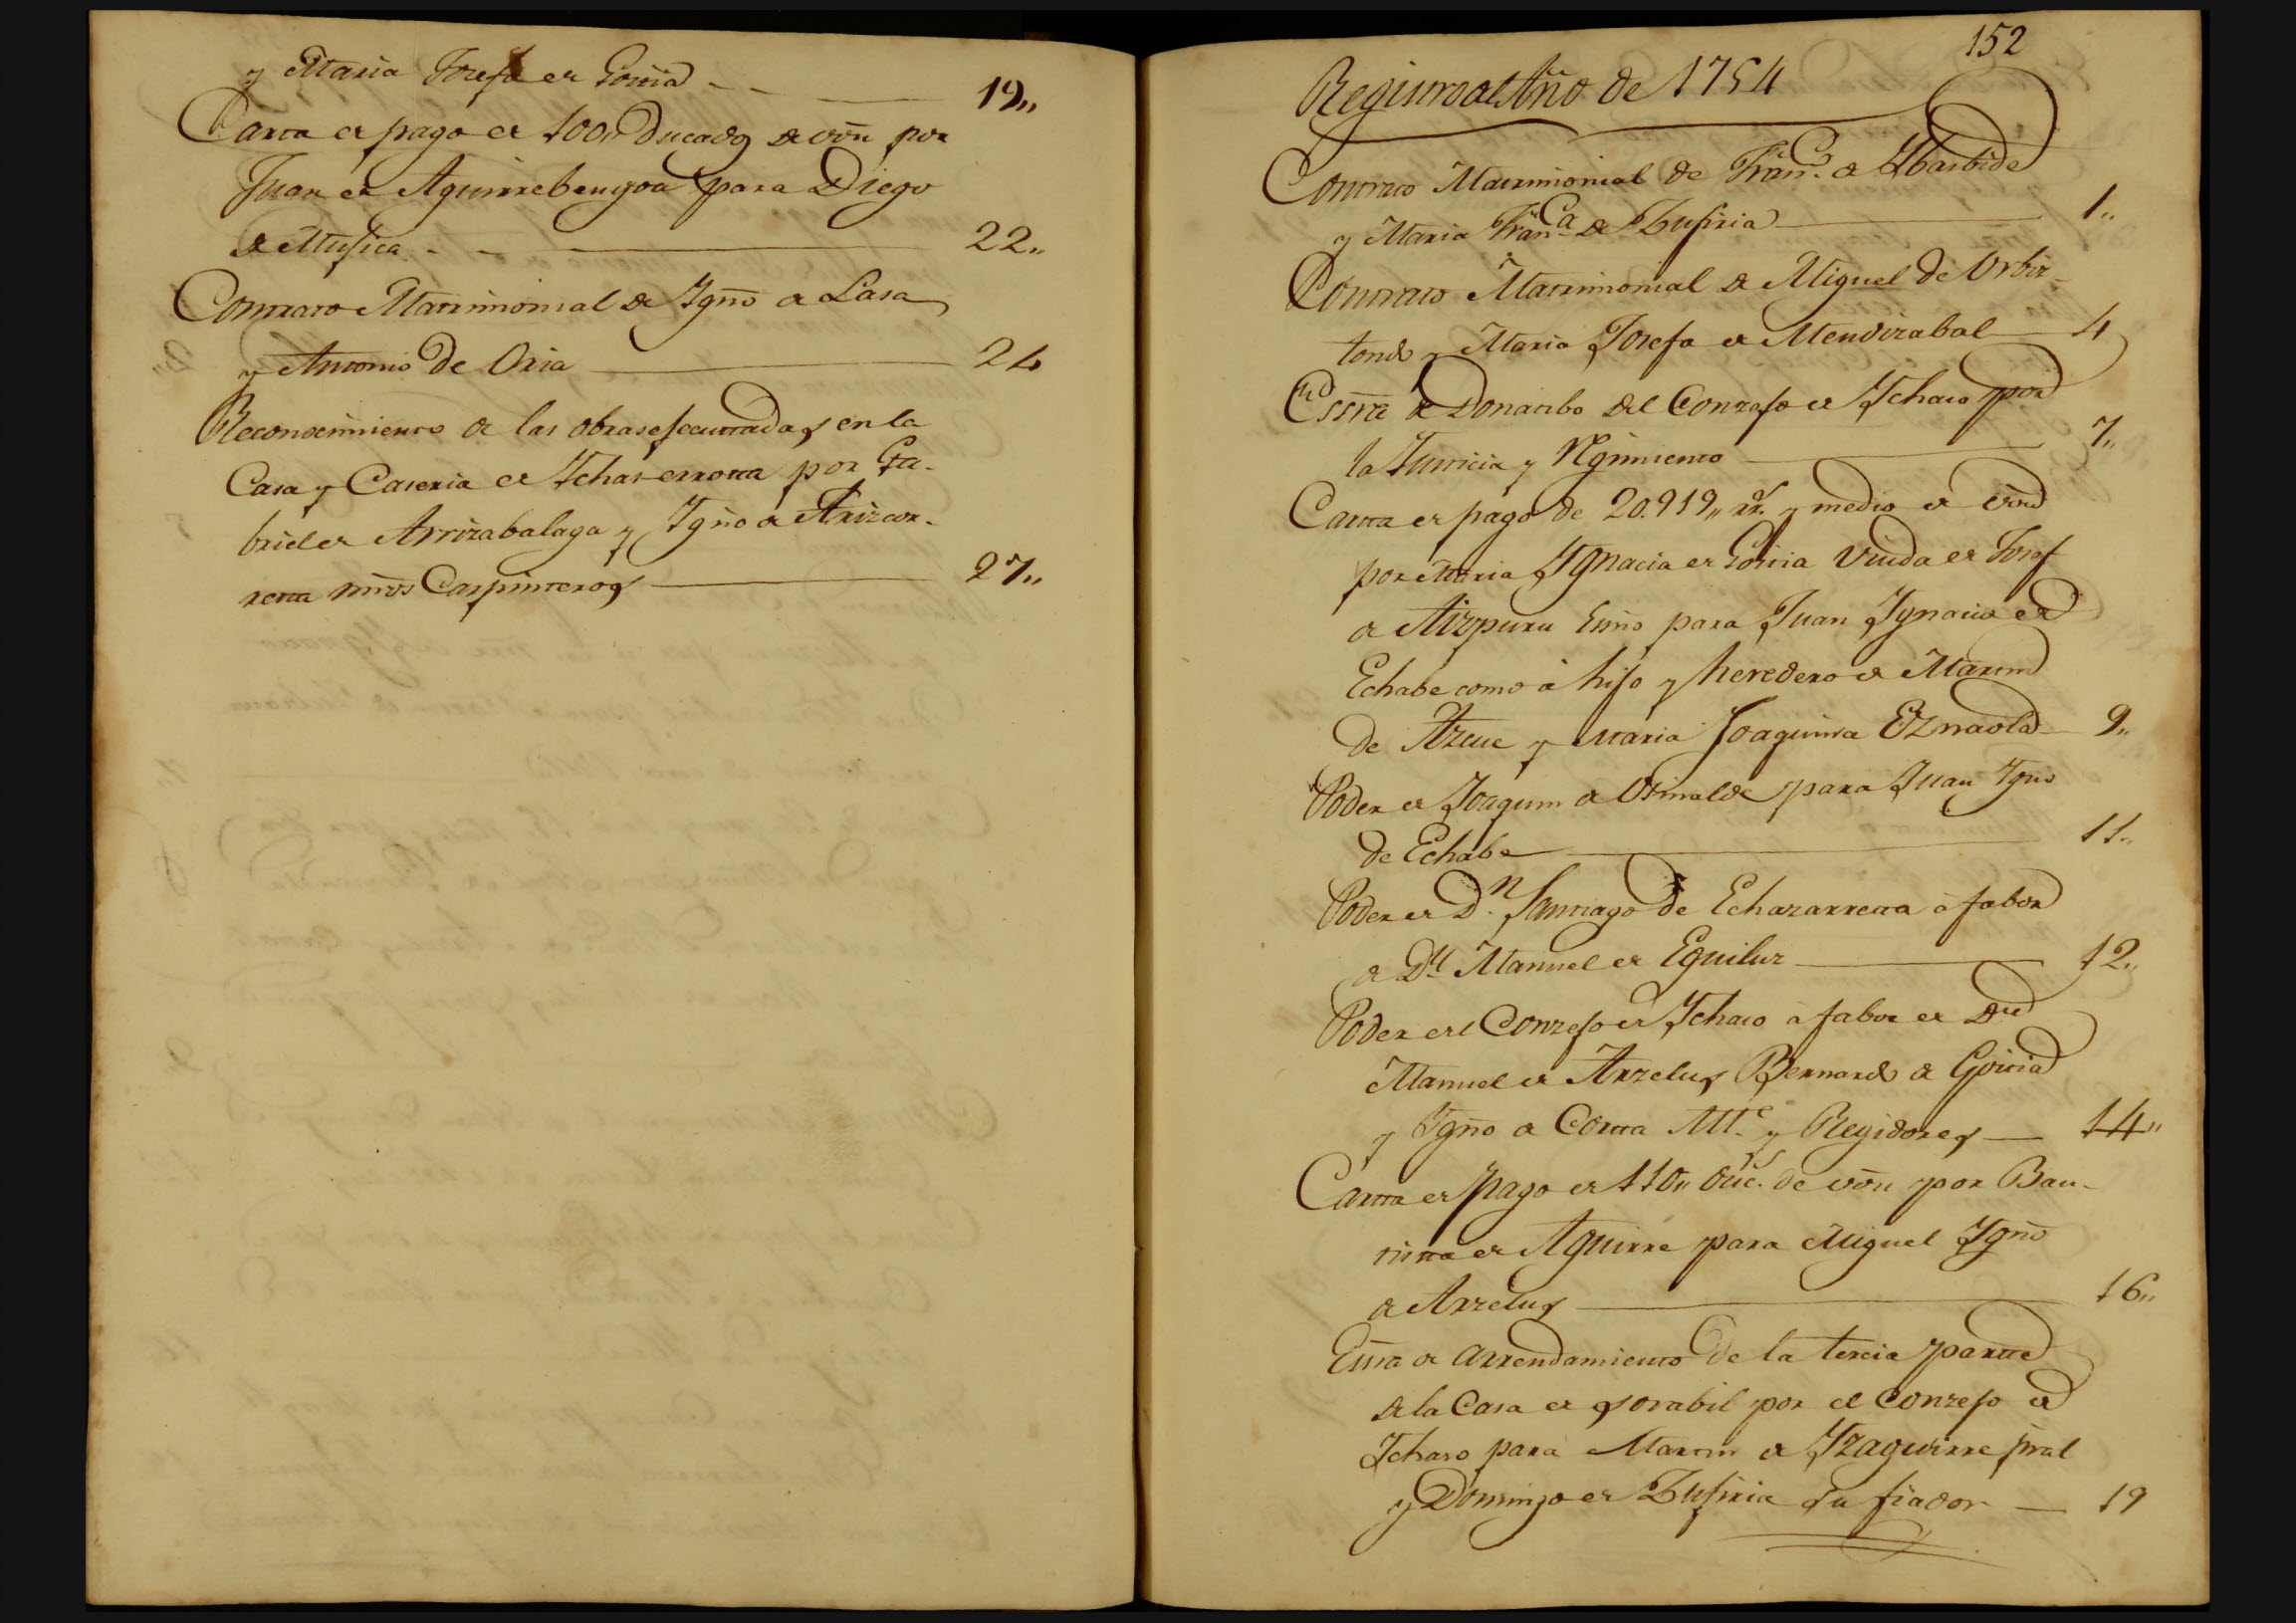 y Maria Josefa de Goitia - - — 19,,
Carta de pago de 100,, Ducados de von por
Juan de Aguirrebengoa para Diego
de Musica - - — 22,,
Contrato Matrimonial de Igno de Lasa
y Antonia de Oria — 24
Reconocimiento de las obras essecuttadas en la
Casa y Caseria de Ichas-errotta por Ga-
briel de Arrizabalaga y Igno de Arizcor-
retta mros Carpinteros — 27,,
152
Registro del Año de 1754
Contrato Matrimonial de Franco de Ybarbide
y Maria Franca de Zufiria — 1,,
Contrato Matrimonial de Miguel de Urbiz-
tondo y Maria Josefa de Mendizabal — 4
Essra de Donatibo del Conzejo de Ichaso por
la Justicia y Rgimiento — 7,,
Cartta de pago de 20.919,, rs. y medio de von
por Maria Ygnacia de Goitia Viuda de Josef
de Aizpuru Essno para Juan Ygnacio de
Echabe como â hijo y heredero de Martin
de Azcue y Maria Joaquina Eznaola — 9,,
Poder de Joaquin de Osinalde para Juan Igno
de Echabe — 11,,
Poder de Dn. Santiago de Echazarretta â fabor
de Dn Manuel de Eguiluz — 12,,
Poder del Conzejo de Ichaso â fabor de Dn
Manuel de Arzelus Bernardo de Goitia
y Igno de Cortta Alle. y Regidores — 14,,
Cartta de Pago de 110,, Ducs. de von por Bau-
tistta de Aguirre para Miguel Igno
de Arzelus — 16,,
Essra de Arrendamiento de la tercia partte
de la Casa de Sorabil por el Conzejo de
Ichaso para Martin de Yzaguirre pral
y Domingo de Zufiria su fiador — 19